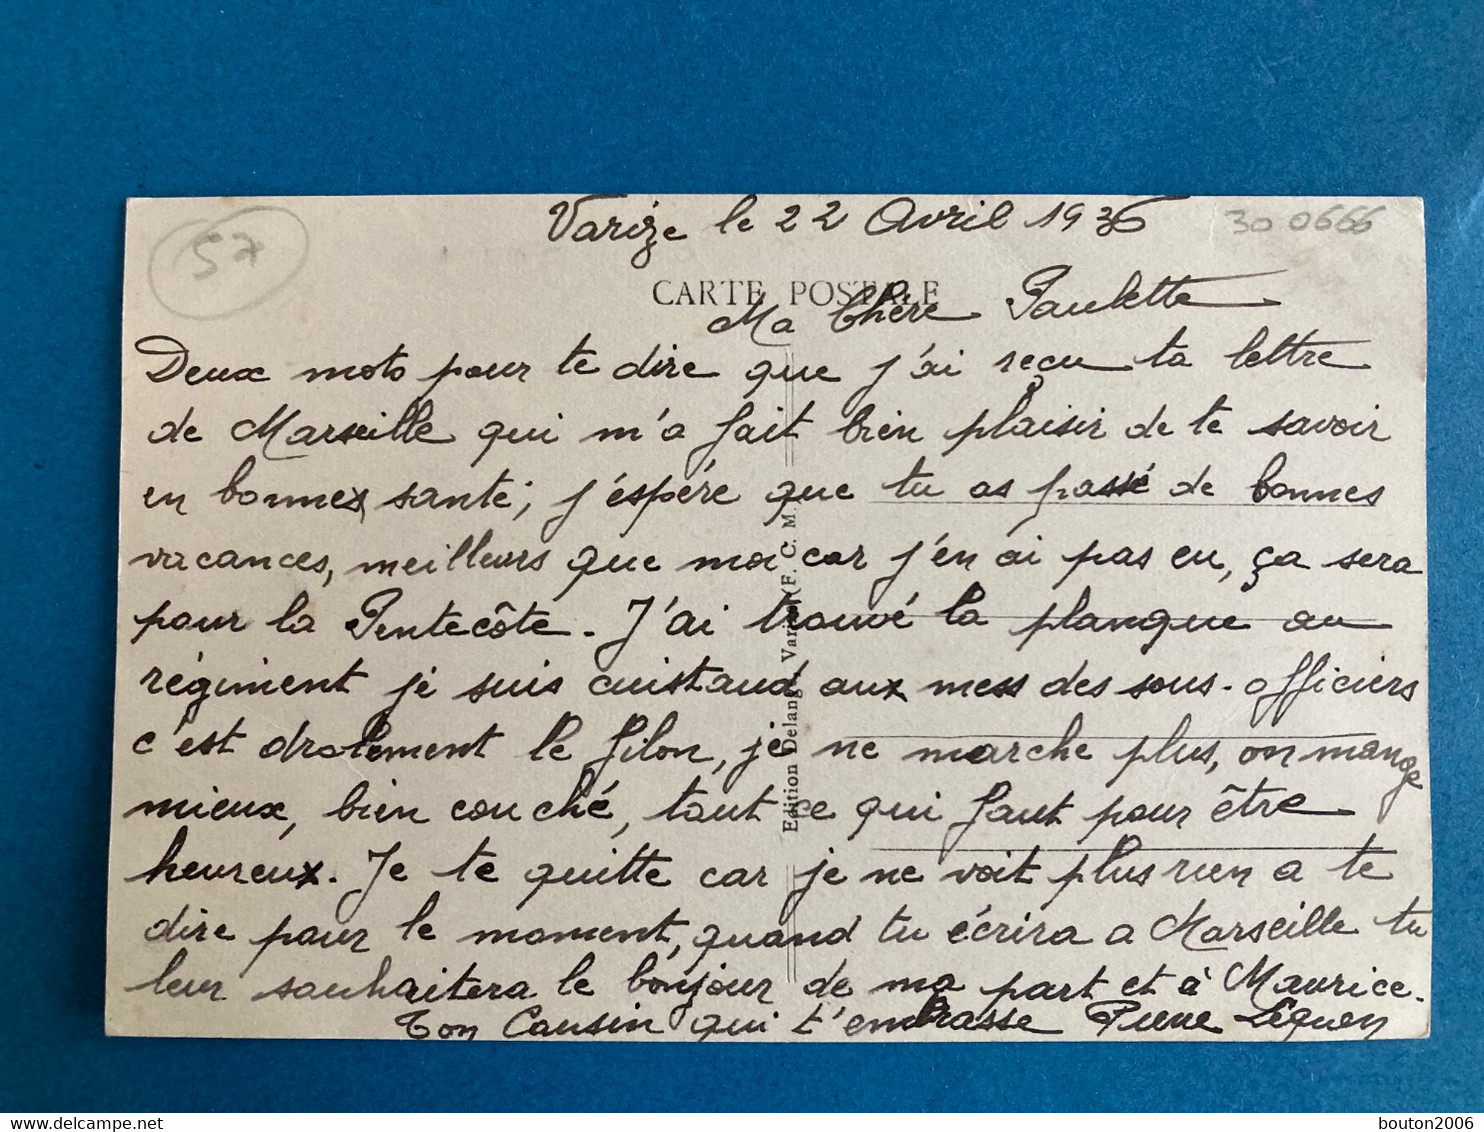 Varize le 22 Avril 1936
30 0666
57
CARTE POSTALE
Ma Chère Paulette
Deux mots pour te dire que j'ai reçu ta lettre
de Marseille qui m'a fait bien plaisir de te savoir
en bonnes santé, j'espére que tu as passé de bonnes
vacances, meilleurs que moi car j'en ai pas eu, ça sera
pour la Pentecôte. J'ai trouvé la planque au
régiment je suis cuistaud aux mess des sous-officiers
c'est drolement le filon, je ne marche plus, on mange
mieux, bien couché, tout ce qui faut pour être
heureux. Je te quitte car je ne voit plus rien a te
dire pour le moment, quand tu écrira a Marseille tu
leur souhaitera le bonjour de ma part et à Maurice.
Ton Cousin qui t'embrasse Pierre
Edition Delang Varize (F. C. M.
bouton2006
delcampe.net